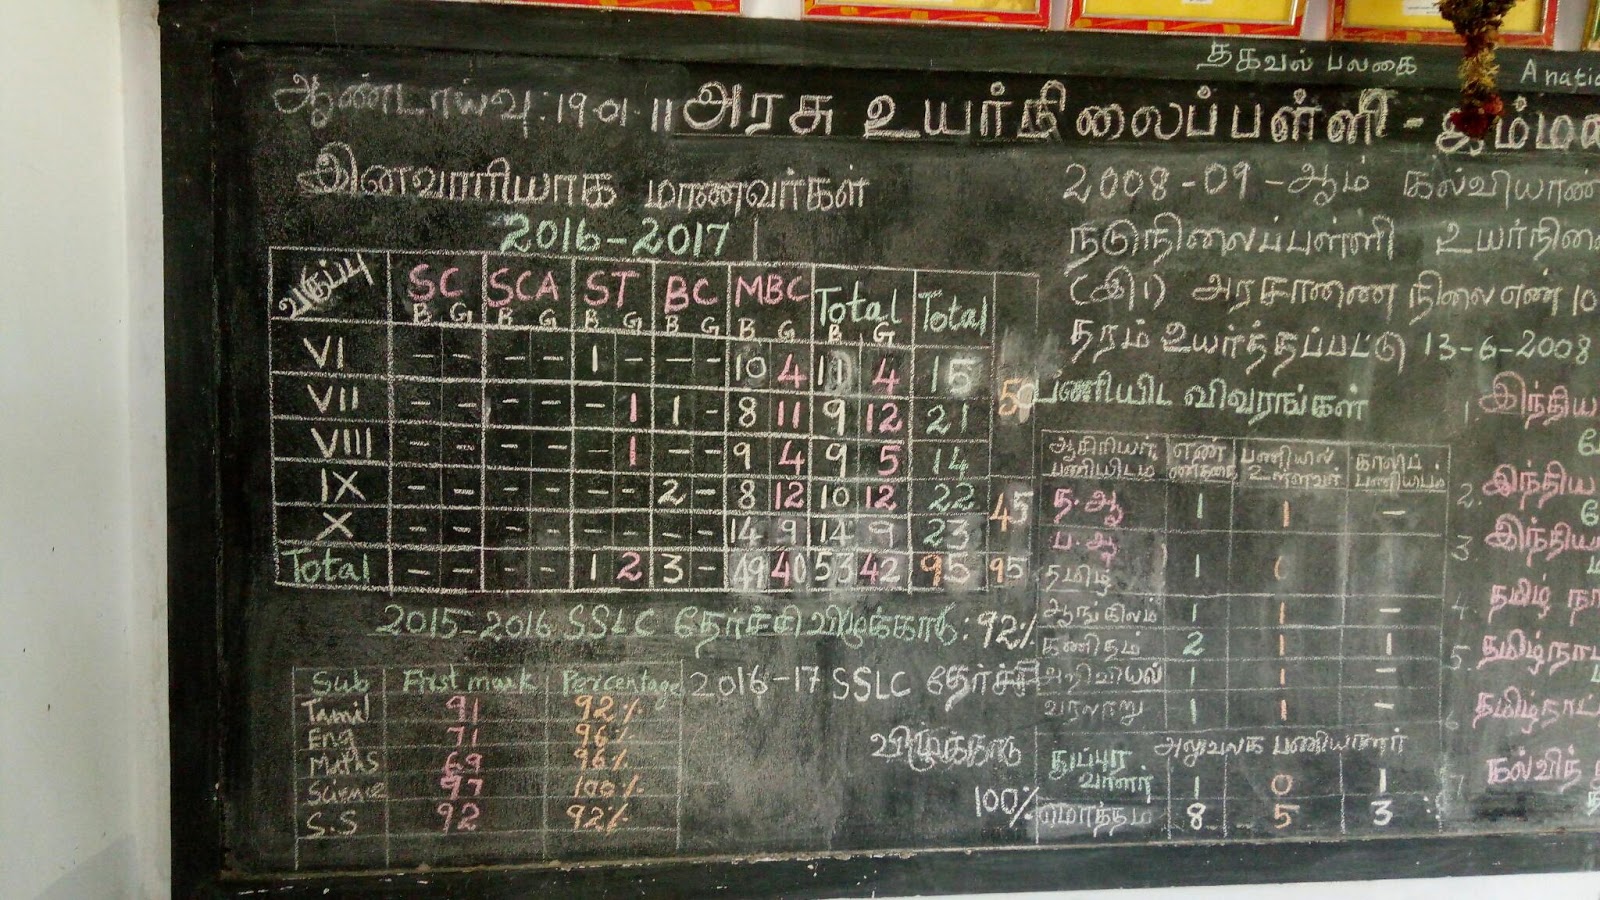 தகவல் பலகை
ஆண்டாய்வு : 19-01-11 அரசு உயர்நிலைப்பள்ளி -
இனவாரியாக மாணவர்கள்
2016-2017
வகுப்பு SC SCA ST BC MBC Total Total
B G B G B G B G B G B G
VI - - - - 1 - - - 10 4 11 4 15
VII - - - - - 1 1 - 8 11 9 12 21 50
VIII - - - - - 1 9 4 9 5 14
IX - - - - - - 2 - 8 12 10 12 22
X - - - - - - - - 14 9 14 9 23 45
Total - - - - 1 2 3 - 49 40 53 42 95 95
2015-2016 SSLC தேர்ச்சி விழுக்காடு : 92%
Sub First mark Percentage
Tamil 91 92%
Eng 71 96%
Maths 69 96%
Science 97 100%
S.S 92 92%
2016-17 SSLC தேர்ச்சி
விழுக்காடு
100%
2008-09-ஆம்
நடுநிலைப்பள்ளி
(இ1) அரசாணை நிலை எண் 10
தரம் உயர்த்தப்பட்டு 13-6-2008
பணியிட விவரங்கள்
ஆசிரியர் பணியிடம் எண்ணிக்கை பணியில் உள்ளவர் காலிப் பணியிடம்
த.ஆ 1 1 -
ப.ஆ
தமிழ் 1
ஆங்கிலம் 1 1 -
கணிதம் 2 1 1
அறிவியல் 1 1 -
வரலாறு 1 1 -
அலுவலக பணியாளர்
1 0 1
மொத்தம் 8 5 3
1. இந்திய
2. இந்திய
3.
4. தமிழ்
5.
6
7